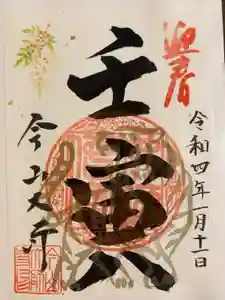 迎春
令和四年一月十一日
壬寅
今山大寺